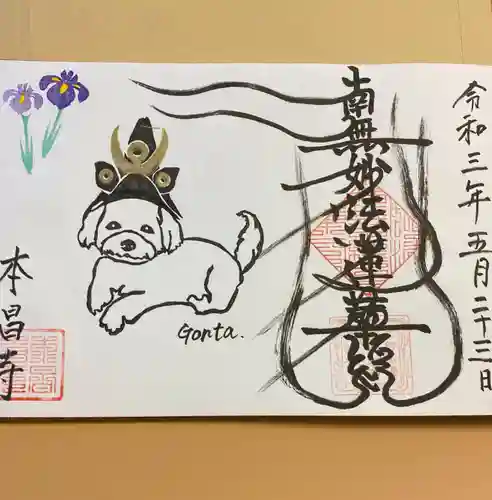 令和三年五月二十三日
南無妙法蓮華経
Gonta.
本昌寺